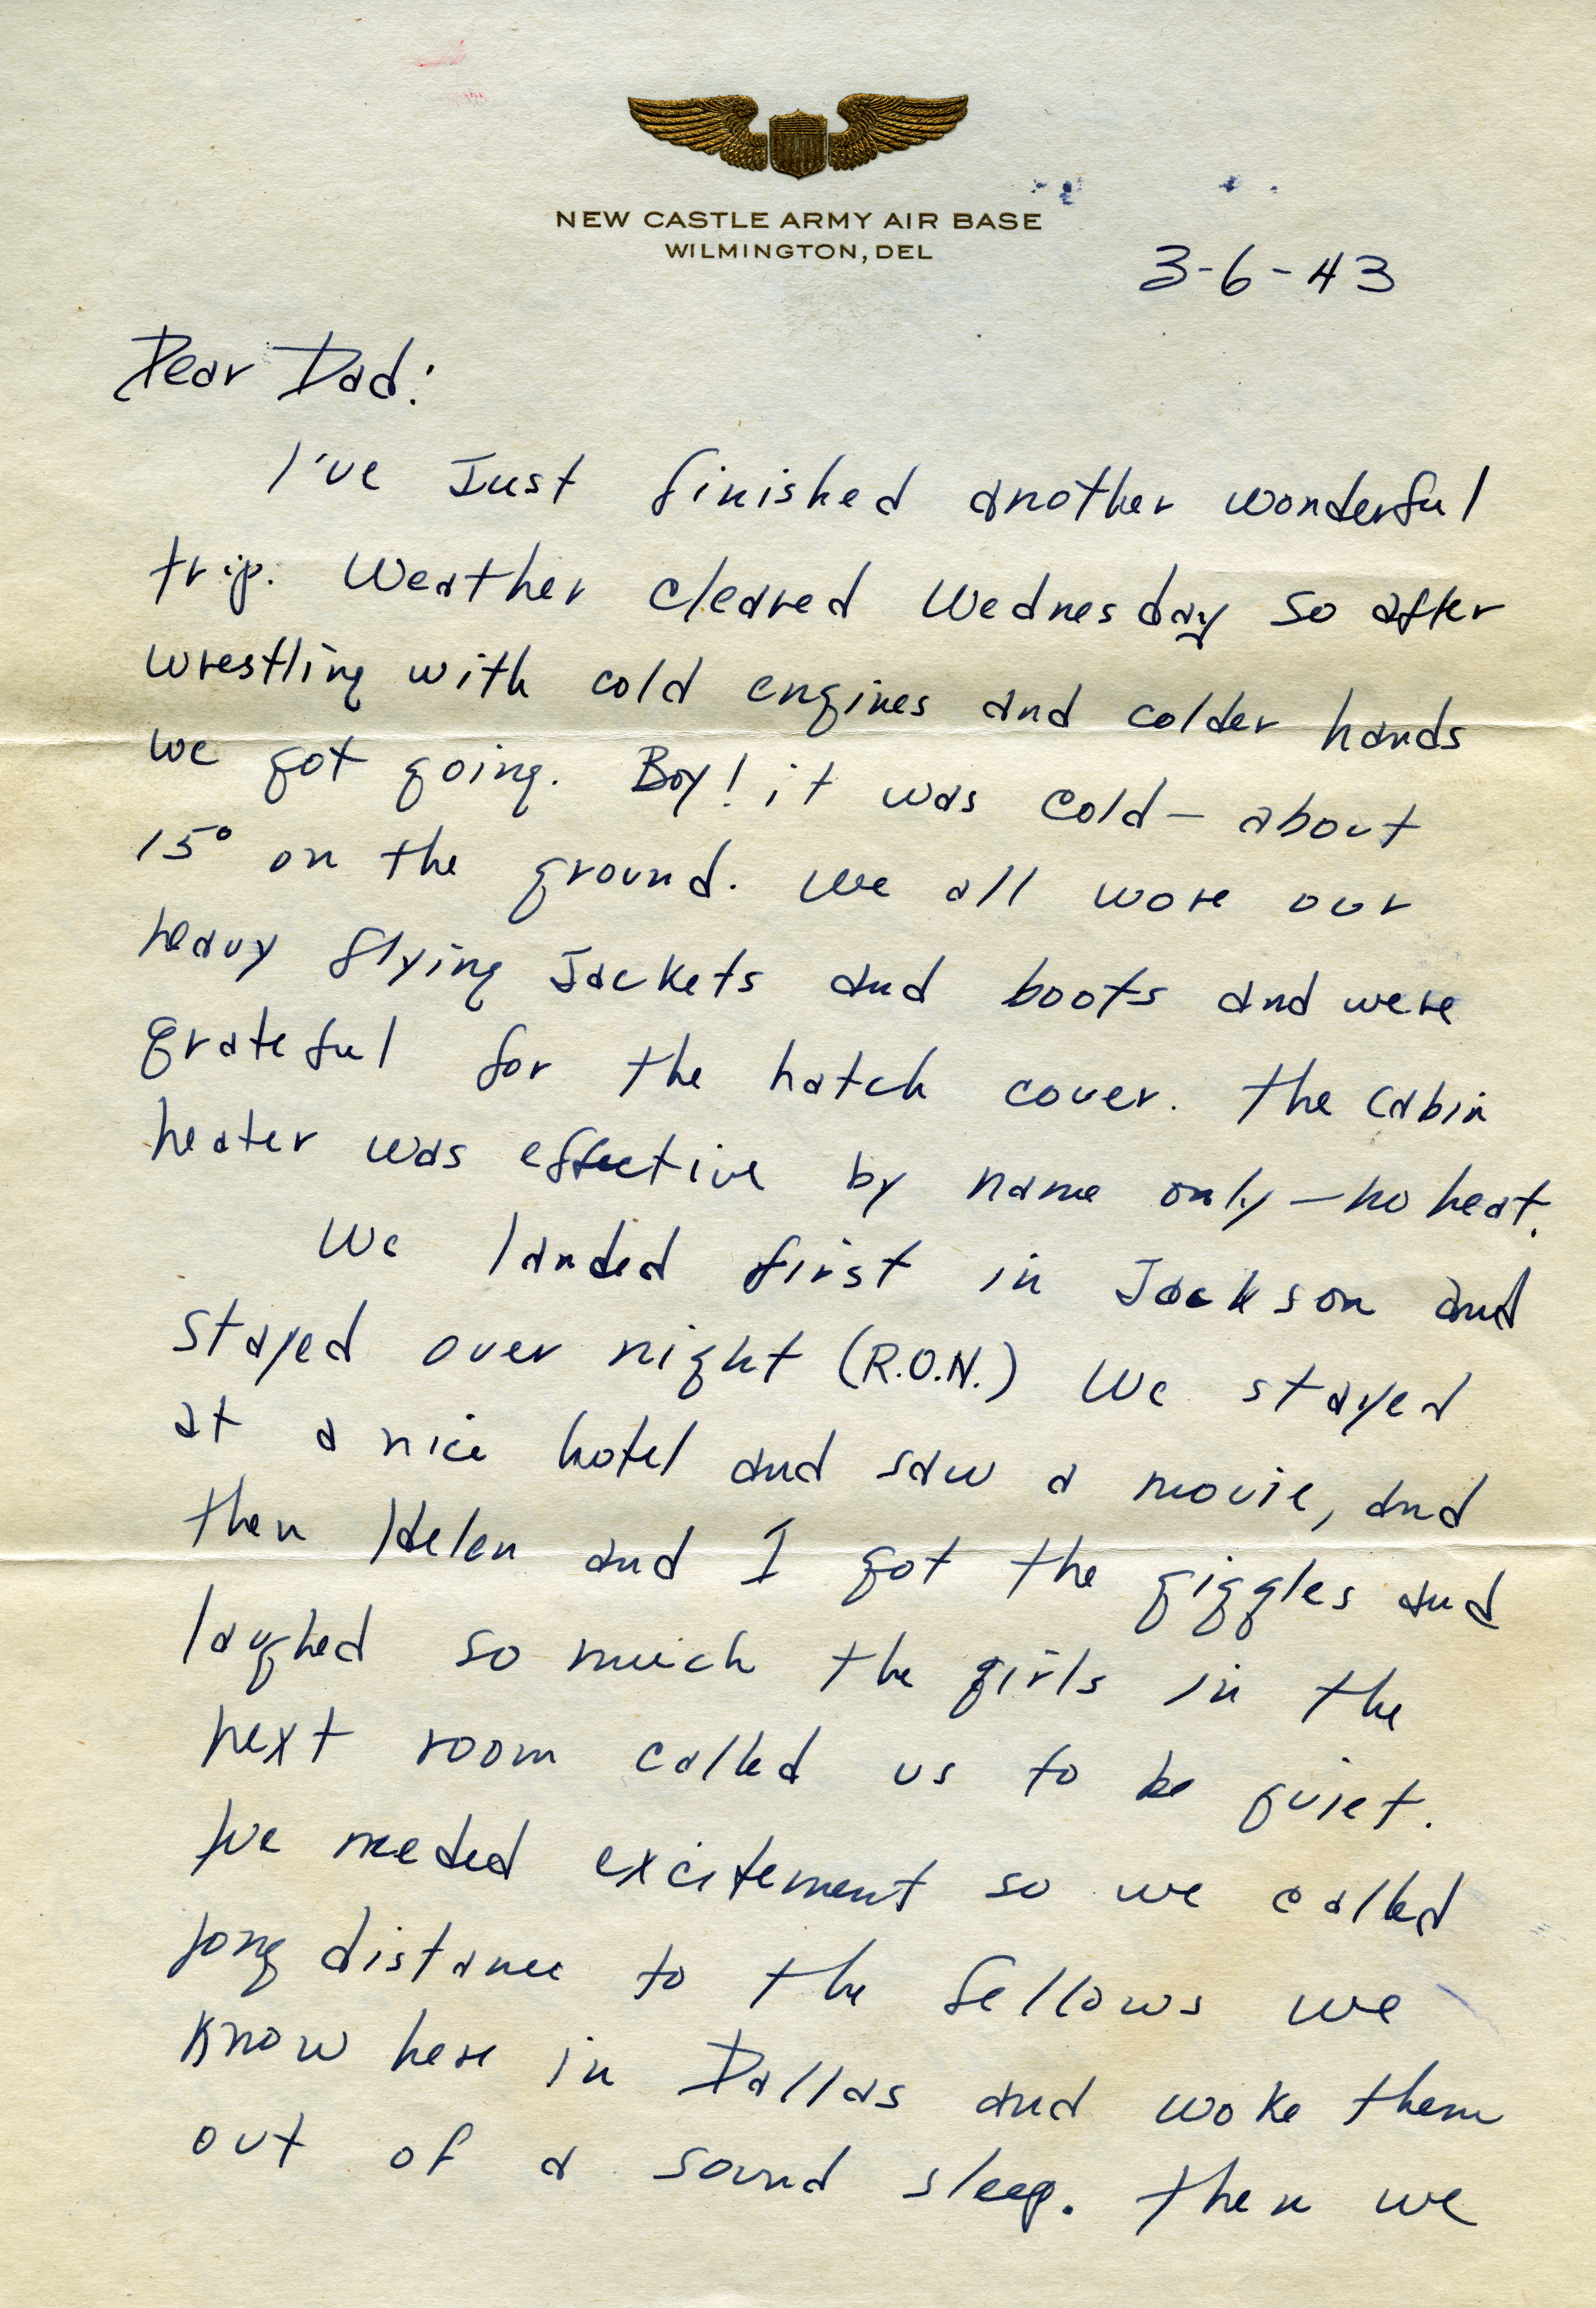 NEW CASTLE ARMY AIR BASE
WILMINGTON, DEL
3-6-43
Dear Dad:
I've Just finished another wonderful
trip. Weather cleared Wednesday so after
wrestling with cold engines and colder hands
we got going. Boy! it was cold — about
15° on the ground. We all wore our
heavy flying Jackets and boots and were
grateful for the hatch cover. The cabin
heater was effective by name only — no heat.
We landed first in Jackson and
stayed over night (R.O.N.) We stayed
at a nice hotel and saw a movie, and
then Helen and I got the giggles and
laughed so much the girls in the
next room called us to be quiet.
We needed excitement so we called
long distance to the fellows we
know here in Dallas and woke them
out of a sound sleep. Then we